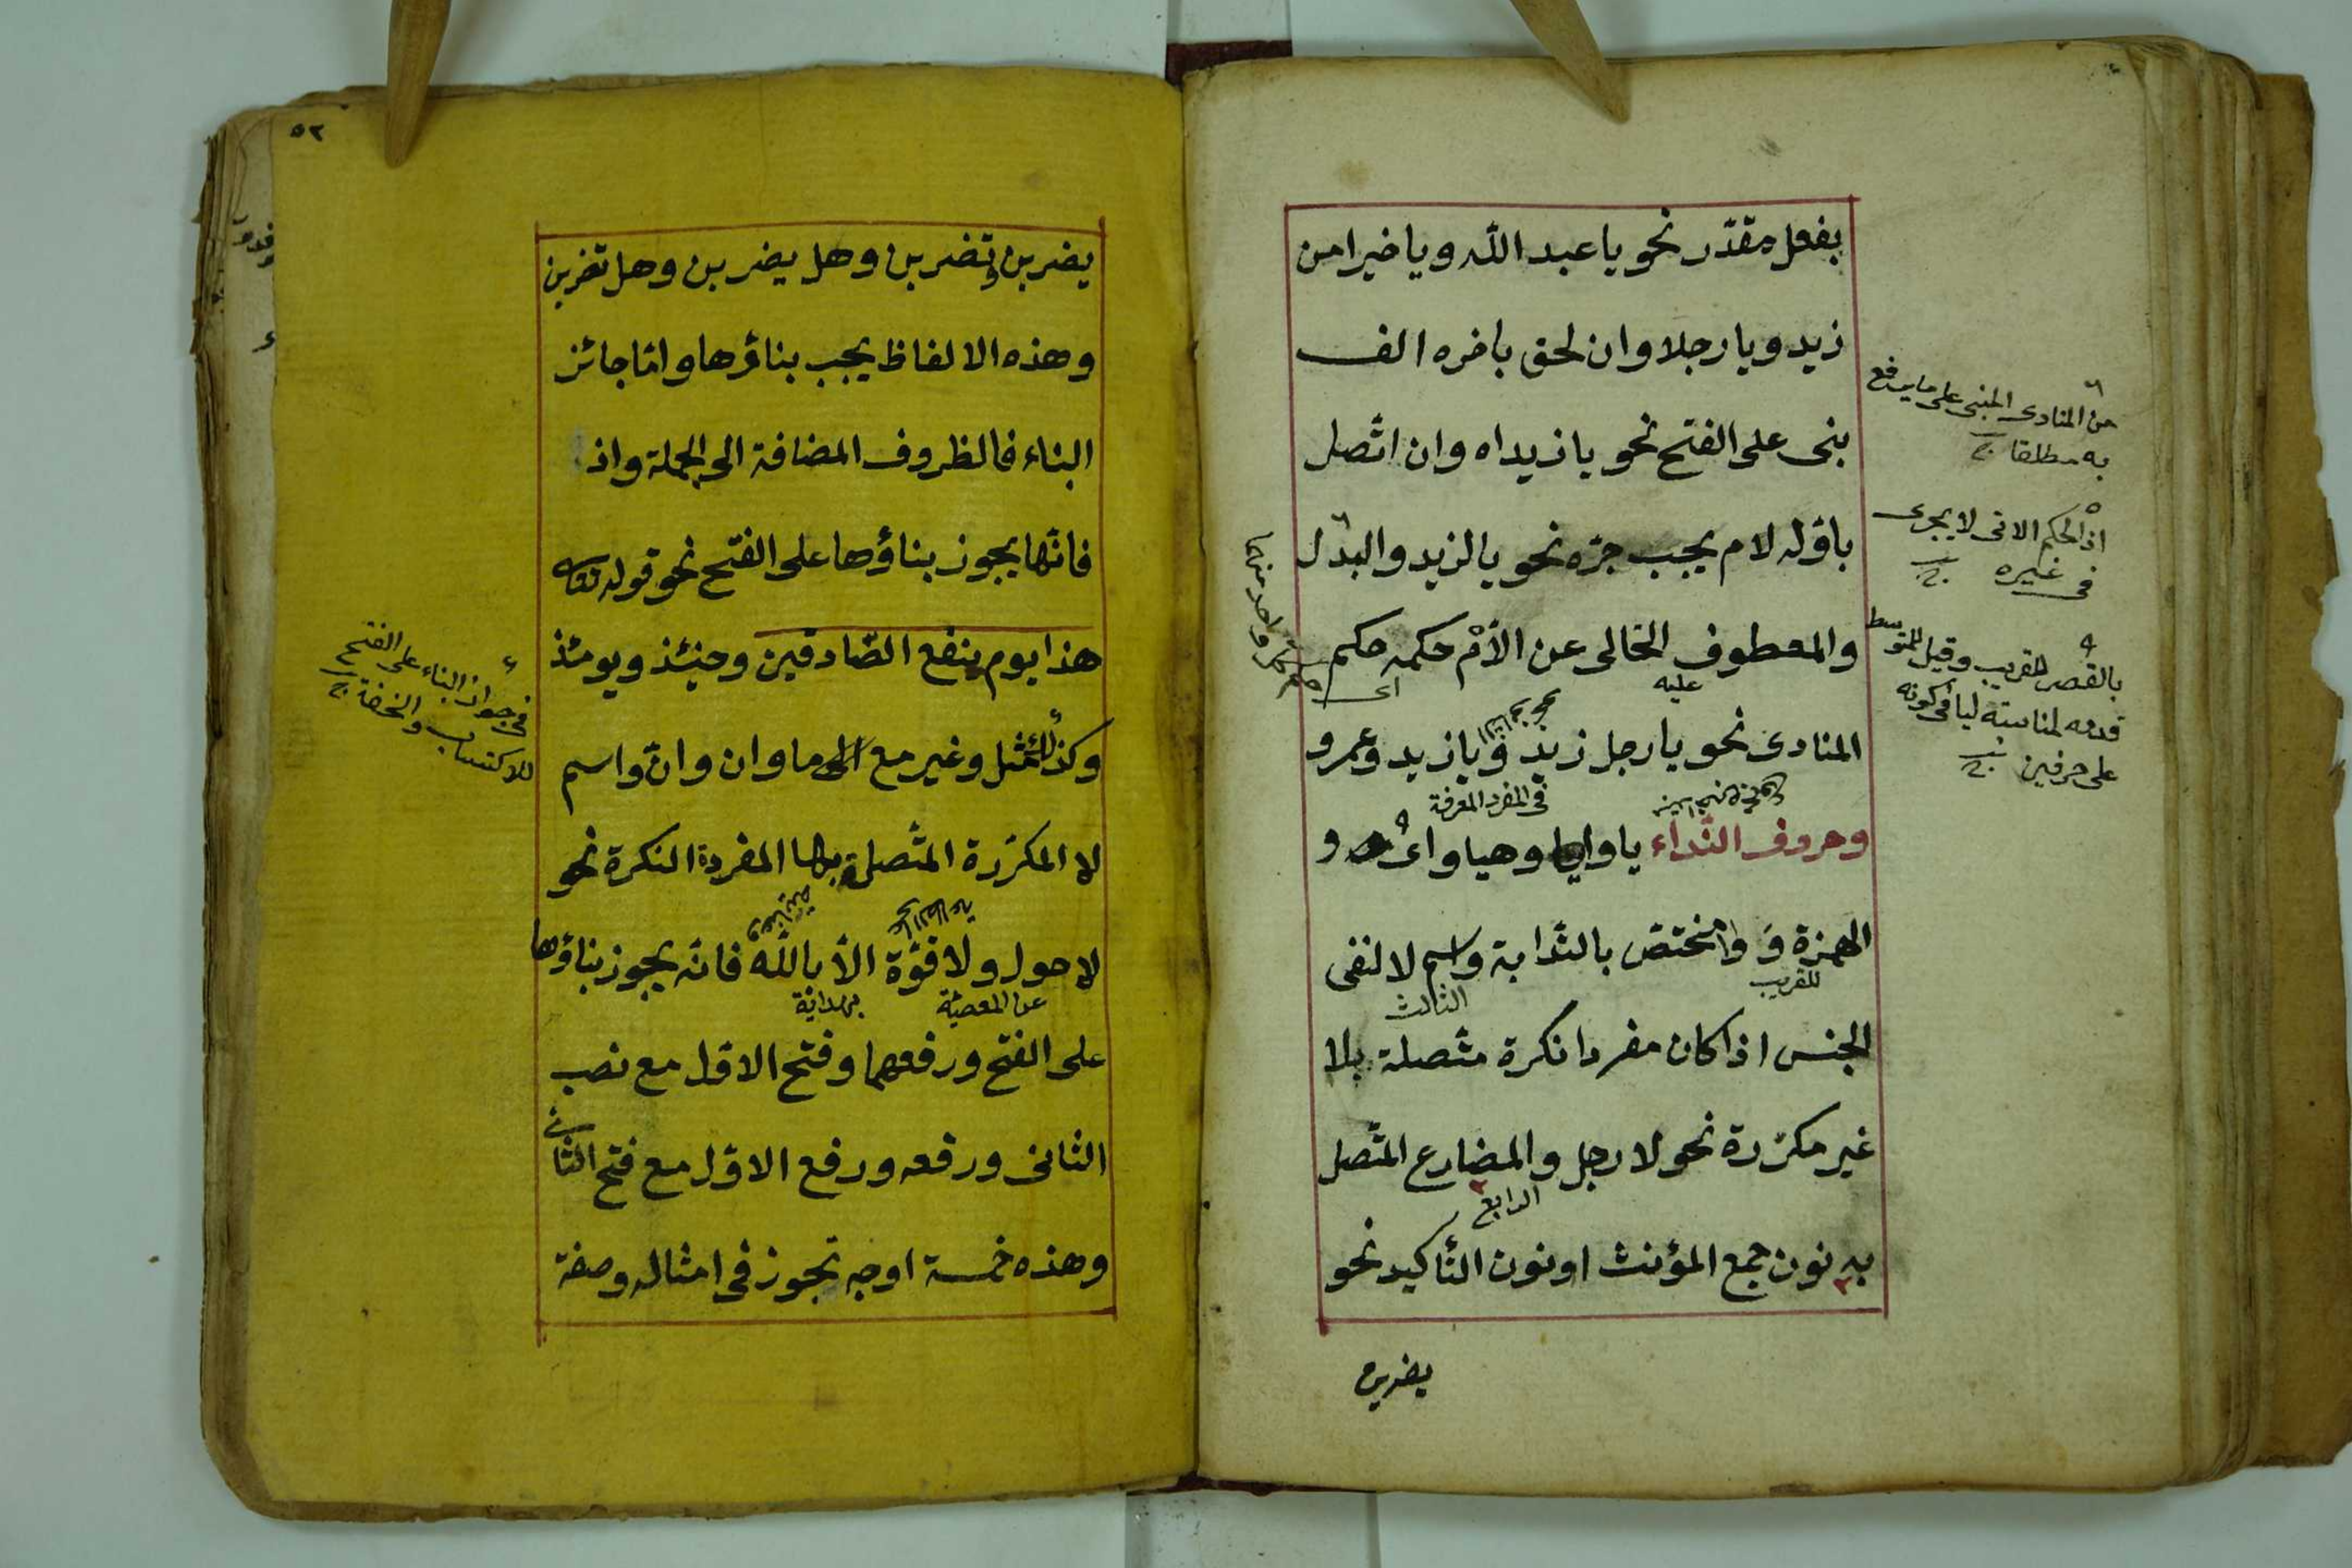 بفعل مقدّر نحو يا عبد الله ويا خيرا من
زيد ويا رجلا وان لحق باخره الف
بنى على الفتح نحو يا زيداه وان اتّصل
باوّله لام يجب جرّه نحو يا لزيد والبدل
والمعطوف الخالى عن اللّام حكمه حكم
المنادى نحو يا رجل زيد ويا زيد وعمرو
وحروف النّداء يا وايا وهيا واى و
الهمزة و وا مختصّ بالنّدابة واسم لا لنفى
الجنس اذا كان مفردا نكرة متّصلة بلا
غير مكرّرة نحو لا رجل والمضارع المتّصل
به نون جمع المؤنث او نون التّأكيد نحو
يضربن
من المنادى المبنى على ما يرفع
به مطلقا
اذ الحكم الاتى لا يجرى
فى غيره
بالقصر للقريب وقيل للمتوسط
قدمه لمناسبة ليا فى كونه
على حرفين
اى
عليه
فى المفرد المعرفة
للقريب
الثالث
الرابع
٥٢
يضربن وتضربن وهل يضربن وهل تضربن
وهذه الالفاظ يجب بناؤها وامّا جائز
البناء فالظروف المضافة الى الجملة واذ
فانّها يجوز بناؤها على الفتح نحو قوله تعالى
هذا يوم ينفع الصّادقين وحينئذ ويومئذ
وكذلك مثل وغير مع ما وان وانّ واسم
لا المكرّرة المتّصلة بها المفردة النكرة نحو
لا حول ولا قوّة الّا بالله فانّه يجوز بناؤها
على الفتح ورفعهما وفتح الاوّل مع نصب
الثانى ورفعه ورفع الاوّل مع فتح الثانى
وهذه خمسة اوجه تجوز فى امثاله وصفة
فى جواز البناء على الفتح
للاكتساب والخفة
عن المعصية